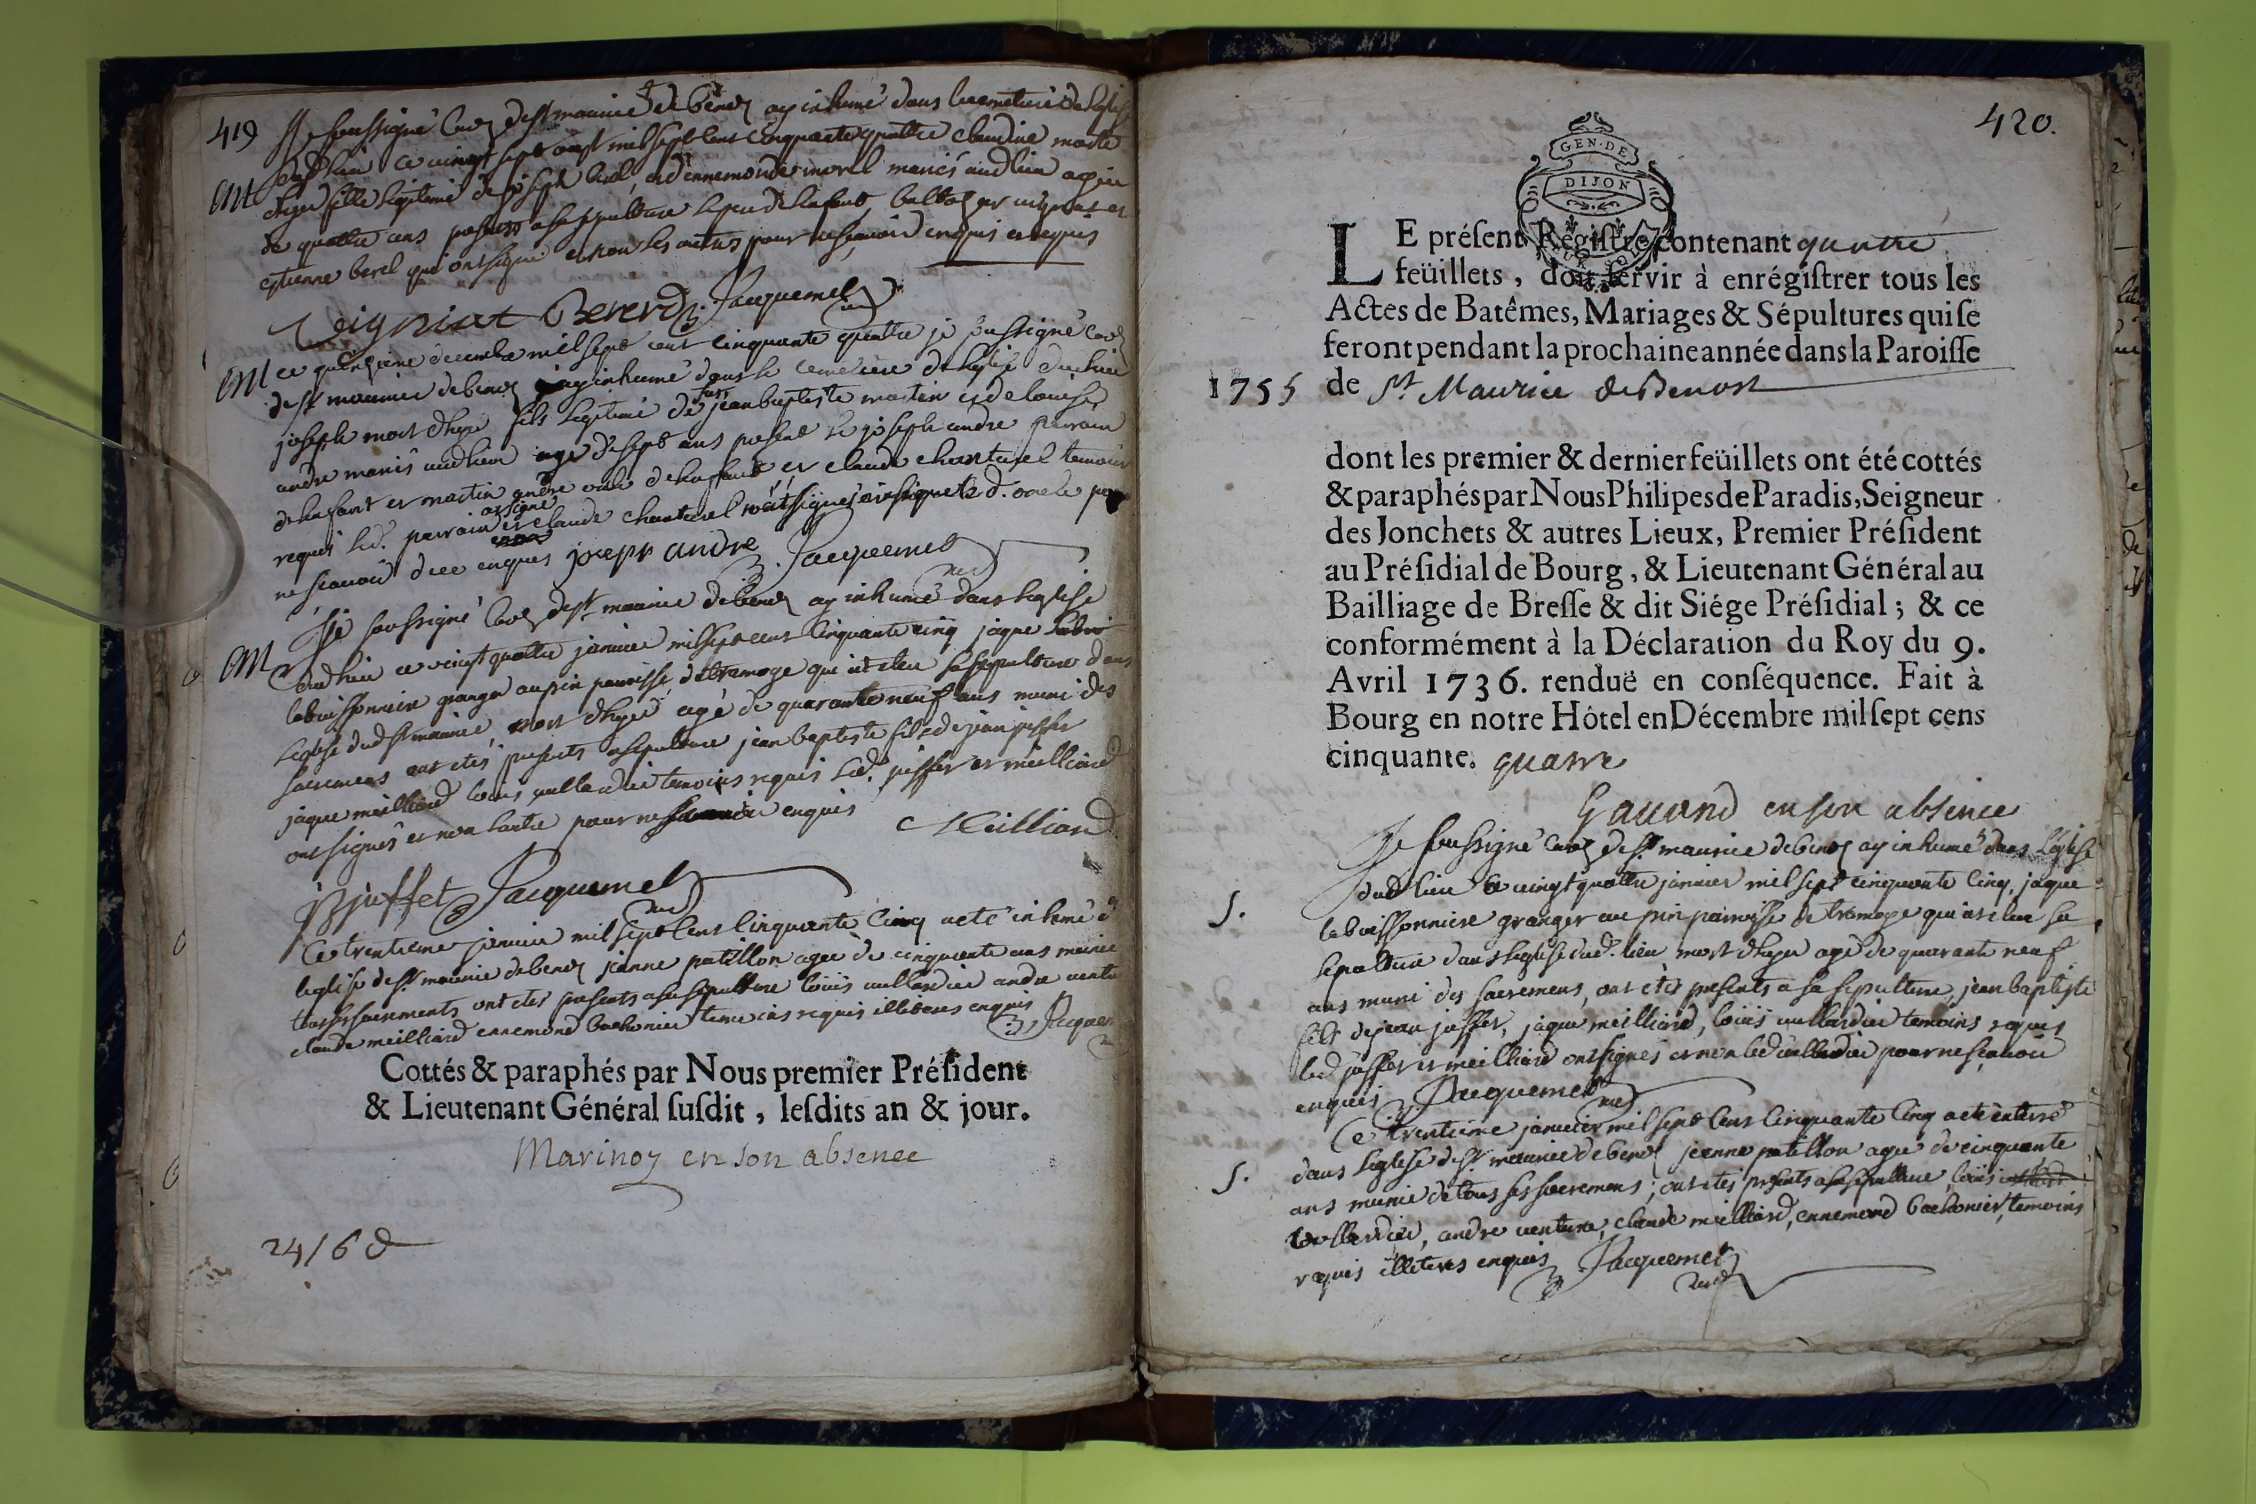 419
Je soussigné curé de st maurice de benost ay inhumé dans le cemetiere de leglise
dudt lieu ce vingt sept aoust mil sept cent cinquante quattre claudine morte
Mt
d'hyer fille legitime de joseph berel, et d'ennemonde morel mariés audt lieu agée
de quattre ans presents a sa sepulture le peu de lafant, baltazar et
etienne berel qui ont signé et non les autres pour ne scavoir enquis et requis
Berel Jacquemet curé
M
ce quinzieme decembre mil sept cent cinquante quattre je soussigné curé
de st maurice de benost ay inhumé dans le cemetiere de leglise dudt lieu
joseph mort d'hyer fils legitime de fut jean baptiste martin et de louise
andré mariés audt lieu agé de sept ans present le joseph andré parrain
de lenfant et martin andré oncle de lenfant, et claude chanturel temoins
requis led. parrain a signé et claude chanturel led. oncle pour
ne scavoir de ce enquis joseph andre Jacquemet curé
M
Je soussigné curé de st maurice de benost ay inhumé dans leglise
dudt lieu ce vingt quattre janvier mil sept cent cinquante cinq jaque
labuissonniere granger au pin paroisse de tramoye qui at eleu sa sepulture dans
leglise dudt st maurice, mort d'hyer agé de quarante neuf ans muni des
sacremens ont étés presents a sa sepulture jean baptiste fils de jean juffet
jaque meilliard louis vullardier temoins requis led. juffet et meilliard
ont signés et non lautre pour ne scavoir enquis
Meilliard
jbjuffet Jacquemet curé
Ce trentieme janvier mil sept cent cinquante cinq a eté inhumé ds
leglise de st maurice de benost jeanne patillon agée de cinquante ans munie
tous ses sacrements ont etes presents a sa sepulture louis vullardier andré ventu
claude meilliard ennemond bachonier temoins requis illiteres enquis Jacquem
Cottés & paraphés par Nous premier Président
& Lieutenant Général susdit, lesdits an & jour.
Marinoz en son absence
24/6 d
420.
GEN·DE
DIJON
LE présent Régistre contenant quattre
feüillets, doit servir à enrégistrer tous les
Actes de Batêmes, Mariages & Sépultures qui se
feront pendant la prochaine année dans la Paroisse
1755 de St. Maurice de Benost
dont les premier & dernier feüillets ont été cottés
& paraphés par Nous Philipes de Paradis, Seigneur
des Jonchets & autres Lieux, Premier Président
au Présidial de Bourg, & Lieutenant Général au
Bailliage de Bresse & dit Siége Présidial; & ce
conformément à la Déclaration du Roy du 9.
Avril 1736. renduë en conséquence. Fait à
Bourg en notre Hôtel en Décembre mil sept cens
cinquante. quatre
Gauand en son absence
Je soussigné curé de st maurice de benost ay inhumé dans l'eglise
dud. lieu ce vingt quattre janvier mil sept cinquante cinq, jaque
S.
labuissonniere granger au pin paroisse de tramoye qui at eleu sa
sepulture dans leglise dud. lieu mort d'hyer agé de quarante neuf
ans muni des sacremens, ont étés presents a sa sepulture, jean baptiste
fils de jean juffet, jaque meilliard, louis vullardier temoins requis
led juffet et meilliard ont signés et non led vullardier pour ne scavoir
enquis Jacquemet curé
Ce trentieme janvier mil sept cent cinquante cinq a eté enterré
dans leglise de st maurice de benost jeanne patillon agée de cinquante
S.
ans munie de tous ses sacremens; ont etés presents a sa sepulture, louis
vullardier, andré venture, claude meilliard, ennemond bachonier, temoins
requis illiteres enquis Jacquemet curé